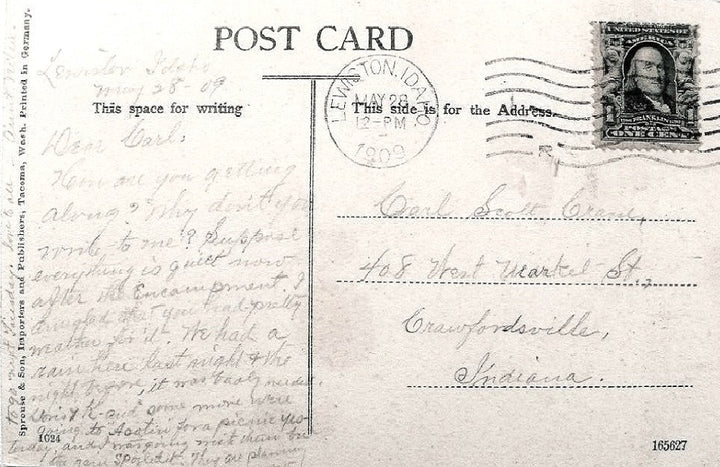 POST CARD
Lewiston Idaho
May 28 - 09
This space for writing
This side is for the Address.
LEWISTON, IDAHO
MAY 28
12-PM
1909
UNITED STATES OF AMERICA
FRANKLIN
POSTAGE
ONE CENT
Dear Carl:
How are you getting
along? Why don't you
write to me? Suppose
everything is quiet now
after the Encampment. I
that you had pretty
weather for it. We had a
rain here last night & the
night before, it was badly needed.
some more were
going to for a picnic yes-
terday, and I was going with them but
the rain spoiled it. They are planning
to go next Tuesday. Love to all -
Carl Scott Crane,
408 West Market St.,
Crawfordsville,
Indiana.
Sprouse & Son, Importers and Publishers, Tacoma, Wash. Printed in Germany.
1024
165627